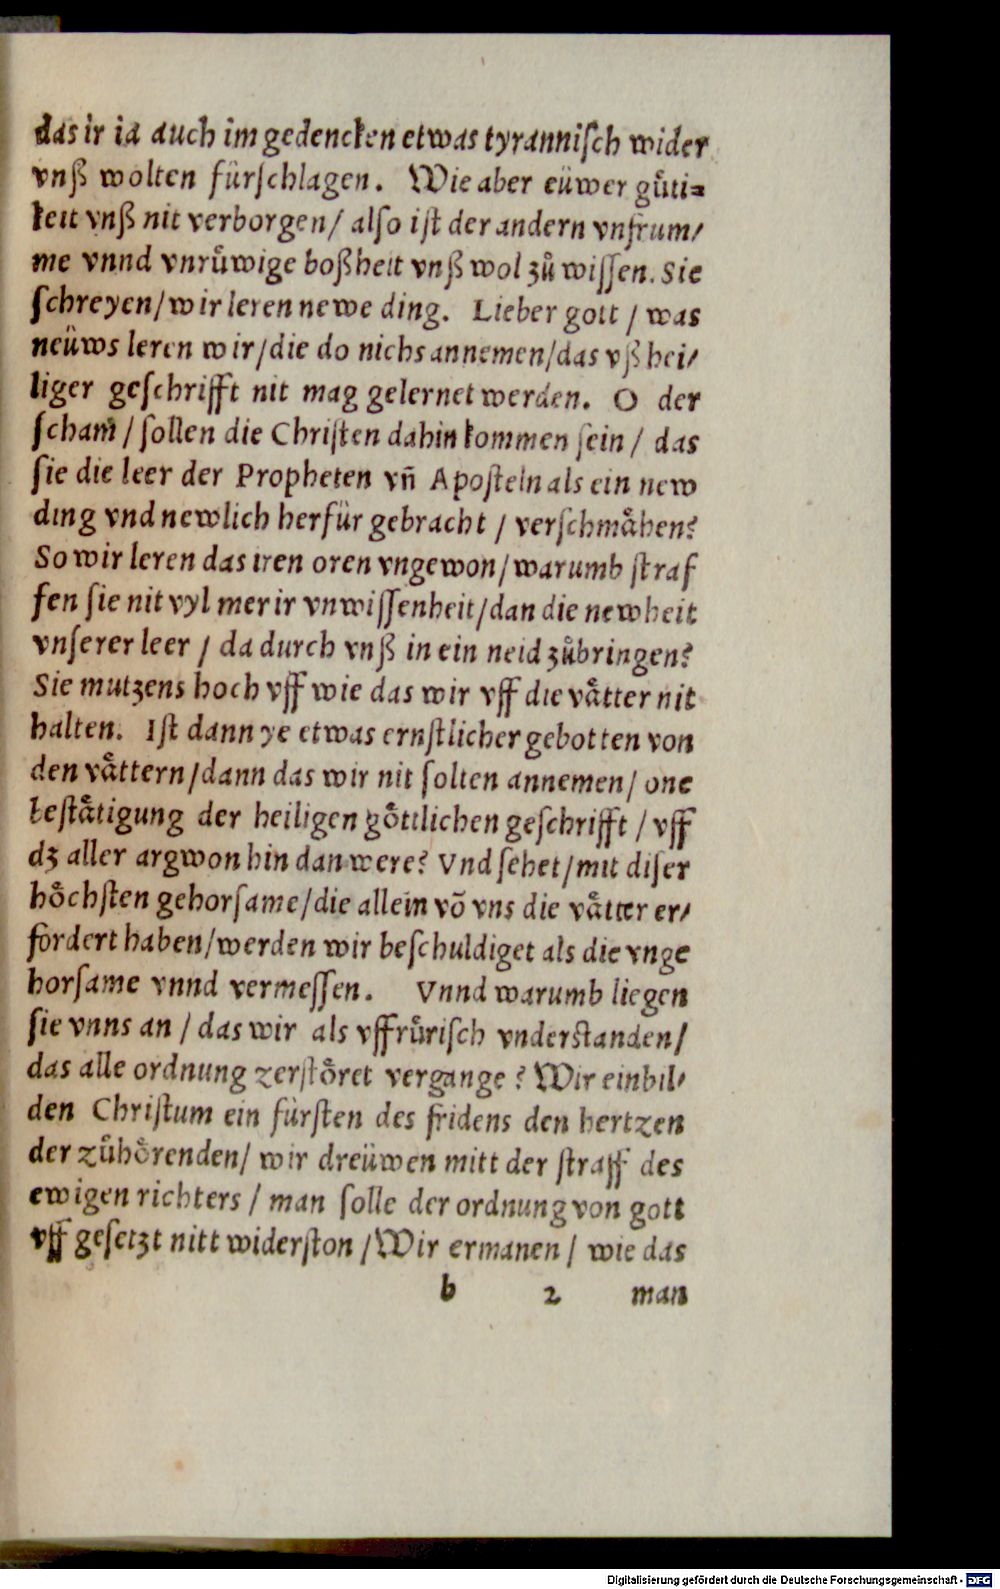 das ir ia auch im gedencken etwas tyranniſch wider
vnß wolten fürſchlagen. Wie aber eüwer gůti⸗
keit vnß nit verborgen/ alſo iſt der andern vnfrum/
me vnnd vnrůwige boßheit vnß wol zů wiſſen. Sie
ſchreyen/wir leren newe ding. Lieber gott / was
neüws leren wir/die do nichs annemen/das vß hei/
liger geſchrifft nit mag gelernet werden. O der
ſcham̃ / ſollen die Chriſten dahin kommen ſein / das
ſie die leer der Propheten vñ Apoſteln als ein new
ding vnd newlich herfür gebracht / verſchmaͤhen?
So wir leren das iren oren vngewon/warumb ſtraf
fen ſie nit vyl mer ir vnwiſſenheit/dan die newheit
vnſerer leer / da durch vnß in ein neid zůbringen?
Sie mutzens hoch vff wie das wir vff die vaͤtter nit
halten. Iſt dann ye etwas ernſtlicher gebotten von
den vaͤttern/dann das wir nit ſolten annemen/ one
beſtaͤtigung der heiligen goͤttlichen geſchrifft / vff
dz aller argwon hin dan were? Vnd ſehet/mit diſer
hoͤchſten gehorſame/die allein võ vns die vaͤtter er/
fordert haben/werden wir beſchuldiget als die vnge
horſame vnnd vermeſſen. Vnnd warumb liegen
ſie vnns an / das wir als vffrůriſch vnderſtanden/
das alle ordnung zerſtoͤret vergange? Wir einbil/
den Chriſtum ein fürſten des fridens den hertzen
der zůhoͤrenden/ wir dreüwen mitt der ſtraff des
ewigen richters / man ſolle der ordnung von gott
vff geſetzt nitt widerſton /Wir ermanen/ wie das
b 2 man
Digitalisierung gefördert durch die Deutsche Forschungsgemeinschaft - DFG